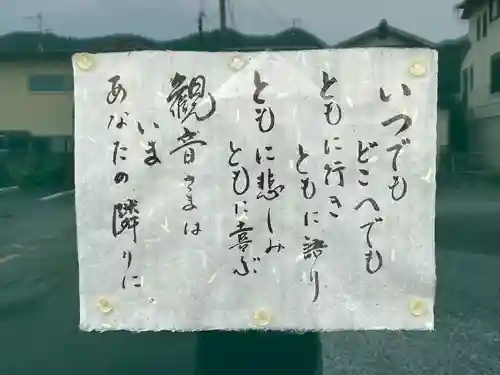 いつでも
どこへでも
ともに行き
ともに語り
ともに悲しみ
ともに喜ぶ
観音さまは
いま
あなたの隣りに。